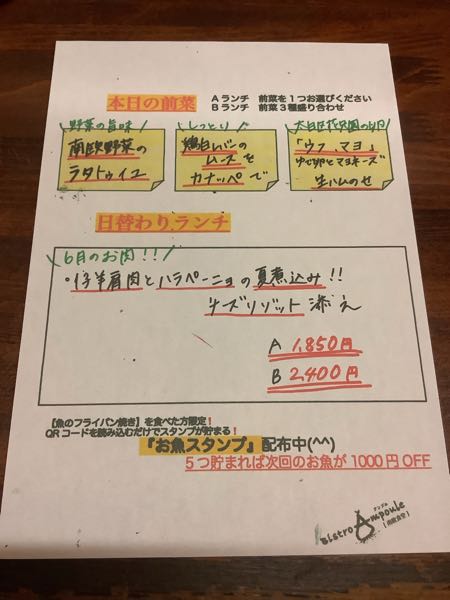 本日の前菜
Aランチ 前菜を1つお選びください
Bランチ 前菜3種盛り合わせ
野菜の旨味
南欧野菜の
ラタトゥイユ
しっとり
鶏白レバーの
ムースを
カナッペで
「ウフ マヨ」
ゆで卵とマヨネーズ
生ハムのせ
日替わりランチ
6月のお肉!!
・仔羊肩肉とハラペーニョの夏煮込み!!
チーズリゾット添え
A 1,850円
B 2,400円
【魚のフライパン焼き】を食べた方限定!
QRコードを読み込むだけでスタンプが貯まる!
『お魚スタンプ』配布中(^^)
5つ貯まれば次回のお魚が1000円OFF
アンプル
Bistro Ampoule